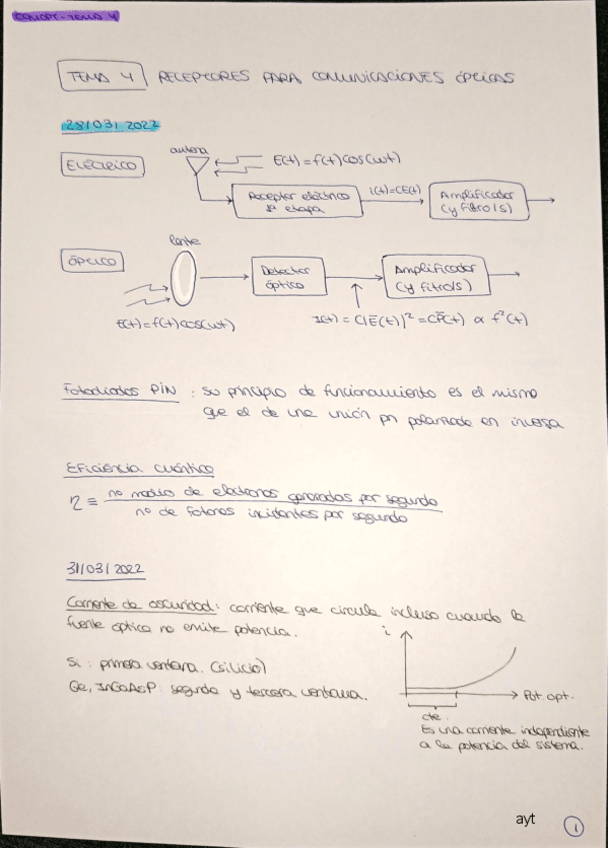 TEMA 4 RECEPTORES PARA COMUNICACIONES ÓPTICAS
28/03/2022
ELÉCTRICO
antena
E(t)=f(t)cos(wt)
Receptor eléctrico
1ª etapa
i(t)=CE(t)
Amplificador
(y filtro/s)
ÓPTICO
lente
Detector
óptico
Amplificador
(y filtro/s)
E(t)=f(t)cos(wt)
I(t)=C|E(t)|²=CP(t) ∝ f²(t)
Fotodiodos PIN : su principio de funcionamiento es el mismo
que el de una unión pn polarizada en inversa
Eficiencia cuántica
η ≡ nº medio de electrones generados por segundo
nº de fotones incidentes por segundo
31/03/2022
Corriente de oscuridad: corriente que circula incluso cuando la
fuente óptica no emite potencia.
i
Si: primera ventana. (silicio)
Ge, InGaAsP: segunda y tercera ventana.
Pot. opt.
cte.
Es una corriente independiente
a la potencia del sistema.
ayt
1